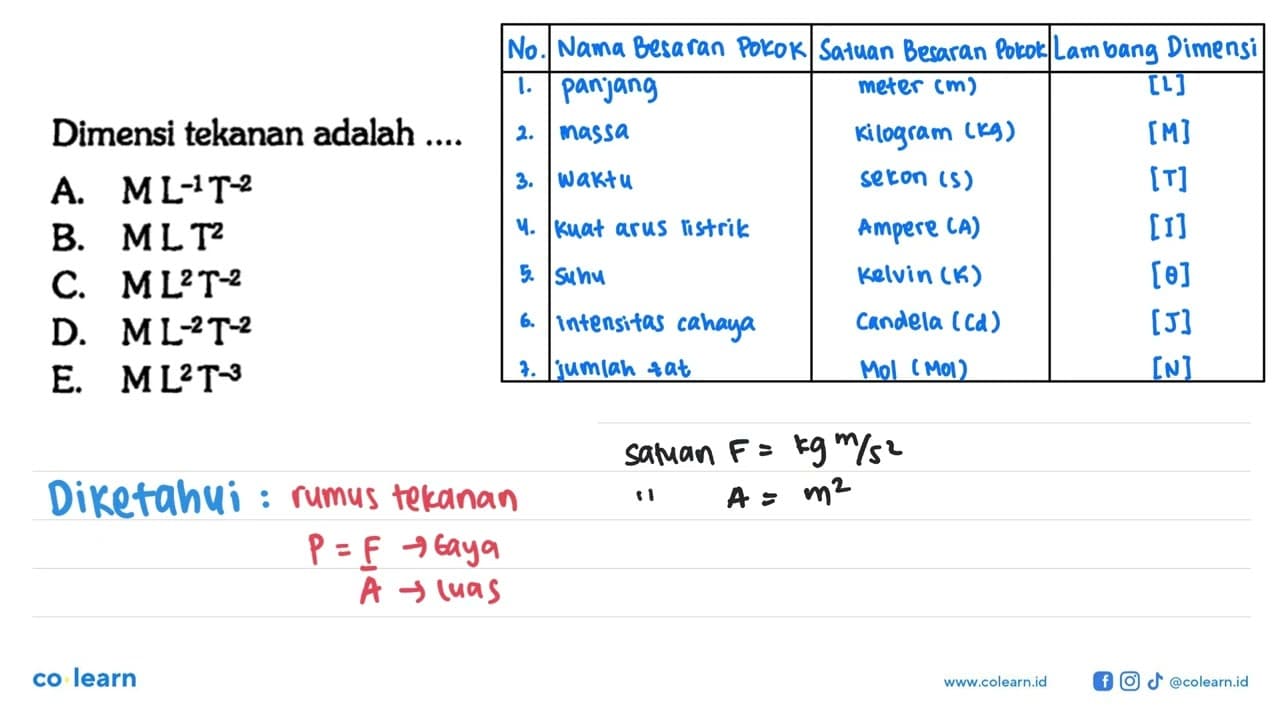 Dimensi tekanan adalah ....
A. M L⁻¹ T⁻²
B. M L T²
C. M L² T⁻²
D. M L⁻² T⁻²
E. M L² T⁻³
No. Nama Besaran Pokok Satuan Besaran Pokok Lambang Dimensi
1. panjang meter (m) [L]
2. massa kilogram (kg) [M]
3. waktu sekon (s) [T]
4. kuat arus listrik Ampere (A) [I]
5. suhu kelvin (K) [θ]
6. intensitas cahaya Candela (Cd) [J]
7. jumlah zat Mol (Mol) [N]
Diketahui : rumus tekanan
P = F → Gaya
A → luas
satuan F = kg m/s²
" A = m²
co learn
www.colearn.id
@colearn.id